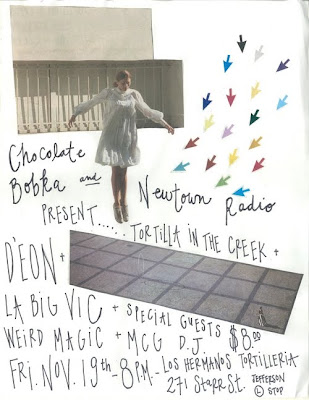 Chocolate
Bobka and Newtown Radio
PRESENT..... TORTILLA IN THE CREEK +
D'EON +
LA BIG VIC + SPECIAL GUESTS $8.00
WEIRD MAGIC + MCG D.J.
FRI. NOV. 19th - 8PM - LOS HERMANOS TORTILLERIA
271 Starr St. JEFFERSON
STOP